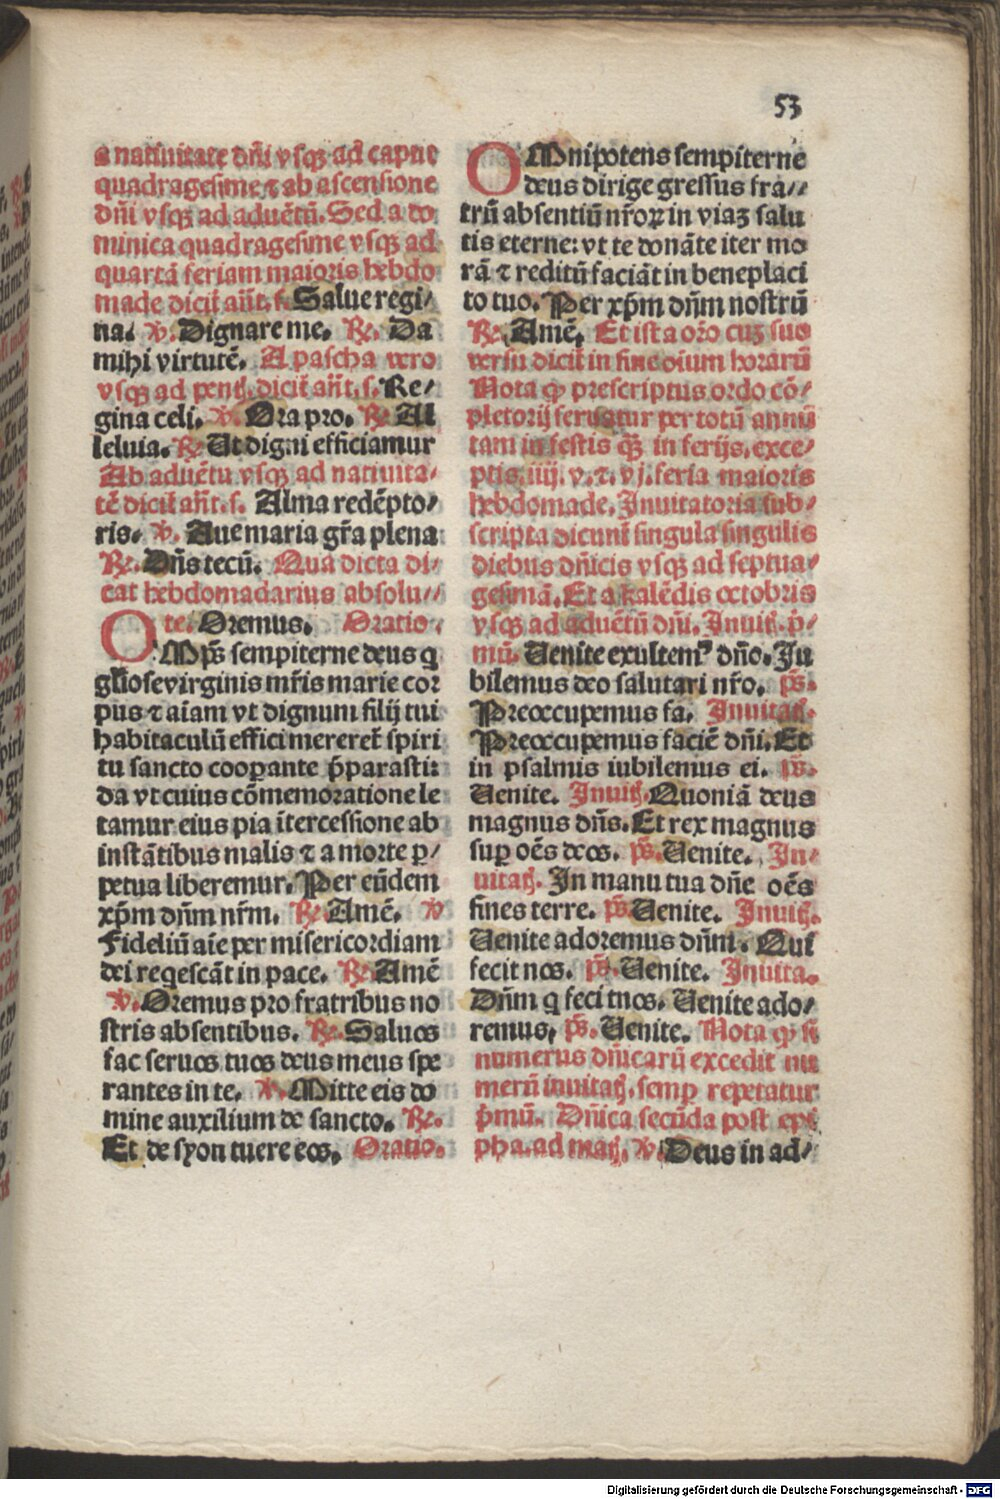 53
a natiuitate dñi vsqꝫ ad caput
quadragesime ⁊ ab ascensione
dñi vsqꝫ ad aduẽtũ. Sed a do
minica quadragesime vsqꝫ ad
quartã feriam maioris hebdo
made dicit̃ añt. s. Salue regi/
na. ℣. Dignare me. ℟. Da
mihi virtutẽ. A pascha vero
vsqꝫ ad penth. dicit̃ añt. s. Re/
gina celi. ℣. Ora pro. ℟ Al
leluia. ℟ Ut digni efficiamur
Ab aduẽtu vsqꝫ ad natiuita/
tẽ dicit̃ añt. s. Alma redẽpto/
ris. ℣. Aue maria gr̃a plena
℟. Dñs tecũ. Qua dicta di/
cat hebdomadarius absolu//
te. Oremus. Oratio.
OMp̃s sempiterne deus q
gl̃iose virginis mr̃is marie cor
pus ⁊ aĩam vt dignum filij tui
habitaculũ effici mereret̃ spiri
tu sancto cooꝑante p̃parasti:
da vt cuius cõmemoratione le
tamur eius pia ĩtercessione ab
instãtibus malis ⁊ a morte ꝑ/
petua liberemur. Per eũdem
xp̃m dñm nr̃m. ℟. Amẽ. ℣
Fideliũ aĩe per misericordiam
dei reqescãt in pace. ℟. Amẽ
℣. Oremus pro fratribus no
stris absentibus. ℟. Saluos
fac seruos tuos deus meus spe
rantes in te. ℣. Mitte eis do
mine auxilium de sancto. ℟.
Et de syon tuere eos. Oratio.
OMnipotens sempiterne
deus dirige gressus fra//
trũ absentiũ nr̃oꝝ in viaꝫ salu
tis eterne: vt te donãte iter mo
rã ⁊ reditũ faciãt in beneplaci
to tuo. Per xp̃m dñm nostrũ
℟. Amẽ. Et ista or̃o cuꝫ suo
versu dicit̃ in fine oĩum horarũ
Nota ꝙ prescriptus ordo cõ/
pletorij seruatur per totũ annũ
tam in festis qꝫ in ferijs, exce/
ptis. iiij. v. ⁊. vj. feria maioris
hebdomade. Inuitatoria sub/
scripta dicunt̃ singula singulis
diebus dñicis vsqꝫ ad septua/
gesimã. Et a kalẽdis octobris
vsqꝫ ad aduẽtũ dñi. Inuith. p̃/
mũ. Uenite exultemꝰ dño. Iu
bilemus deo salutari nr̃o. p̃s.
Preoccupemus fa. Inuitath.
Preoccupemus faciẽ dñi. Et
in psalmis iubilemus ei. p̃s.
Uenite. Inuith. Quoniã deus
magnus dñs. Et rex magnus
suꝑ oẽs deos. p̃s. Uenite. In/
uitath. In manu tua dñe oẽs
fines terre. p̃s. Uenite. Inuith.
Uenite adoremus dñm. Qui
fecit nos. p̃s. Uenite. Inuita.
Dñm q feci tnos. Uenite ado/
remus. p̃s. Uenite. Nota ꝙ si
numerus dñicarũ excedit nu
merũ inuitath. semꝑ repetatur
p̃mũ. Dñica secũda post epi
pha. ad math. ℣. Deus in ad/
Digitalisierung gefördert durch die Deutsche Forschungsgemeinschaft - DFG